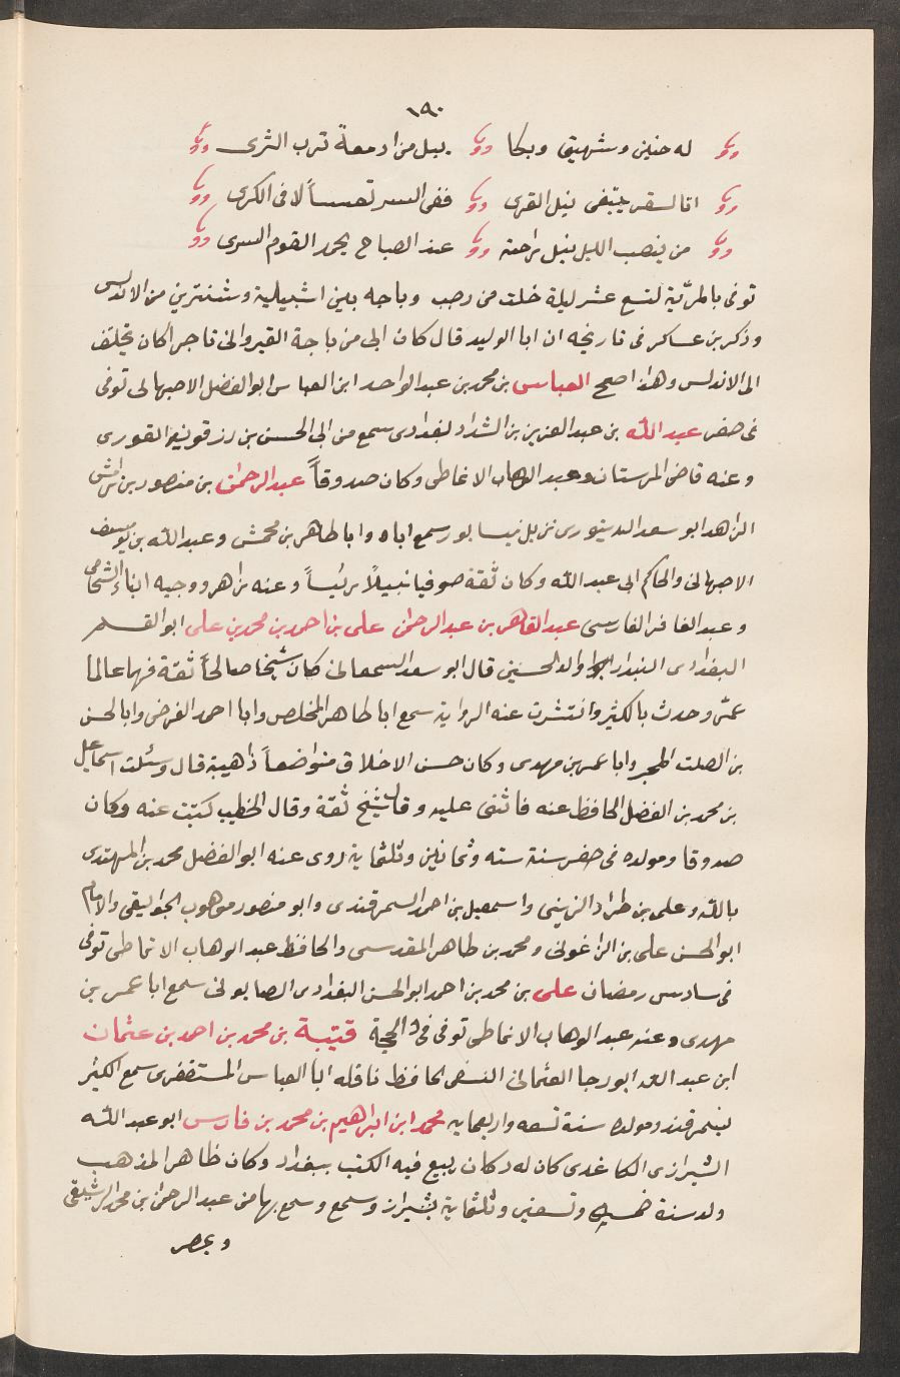 ١٩٠
له حنين وشهيق وبكا يبل من ادمعة ترب الثرى
انا لسفر يبتغى نيل القرى ففى السر تعسساً لا فى الكرى
من ينصب الليل نيل راحته عند الصباح يحمد القوم السرى
توفى بالمريّة لتسع عشر ليلة خلت من رجب وباجه بين اشبيلية وشنترين من الاندلس
وذكر بن عساكر فى تاريخه ان ابا الوليد قال كان ابى من باجة القيروانى تاجرا كان يختلف
الى الاندلس وهذا اصح العباس بن محمد بن عبد الواحد ابن العباس ابو الفضل الاصبهانى توفى
فى صفر عبد الله بن عبد العزيز بن الشداد بغدادى سمع من ابى الحسن بن رزقويه الفورى
وعنه قاضى المرستان وعبد الوهاب الانماطى وكان صدوقاً عبد الرحمن بن منصور بن رامش
الزاهد ابو سعد الدينورى نزيل نيسابور سمع اباه وابا طاهر بن محمش وعبد الله بن يوسف
الاصبهانى والحاكم ابى عبد الله وكان ثقة صوفيا نبيلاً رئيساً وعنه زاهر ووجيه ابناء الشحامى
وعبد الغافر الفارسى عبد القاهر بن عبد الرحمن على بن احمد بن محمد بن على ابو القسم
البغدادى البندار والد الحسين قال ابو سعد السمعانى كان شيخا صالحاً ثقة فهما عالما
عمّر وحدث بالكثير وانتشرت عنه الرواية سمع ابا طاهر المخلص وابا احمد الفرضى وابا الحسن
بن الصلت المجبر وابا عمر بن مهدى وكان حسن الاخلاق متواضعاً ذا هيبة قال وسئلت اسماعيل
بن محمد بن الفضل الحافظ عنه فاثنى عليه وقال شيخ ثقة وقال الخطيب كتبت عنه وكان
صدوقا ومولده فى صفر سنة سته وثمانين وثلثماية روى عنه ابو الفضل محمد بن المهتدى
بالله وعلى بن طراد الزينبى واسمعيل بن احمد السمرقندى وابو منصور موهوب الجواليقى والامام
ابو الحسن على بن الزاغونى ومحمد بن طاهر المقدسى والحافظ عبد الوهاب الانماطى توفى
فى سادس رمضان على بن محمد بن احمد ابو الحسن البغدادى الصابونى سمع ابا عمر بن
مهدى وعنه عبد الوهاب الانماطى توفى فى الحجة قتيبة بن محمد بن احمد بن عثمان
ابن عبد الله ابو رجا العثمانى النسفى الحافظ نافله ابا العباس المستغفرى سمع الكثير
بسمرقند ومولده سنة تسعه واربعمايه محمد ابن ابراهيم بن محمد بن فارس ابو عبد الله
الشيرازى الكاغدى كان له دكان يبيع فيه الكتب ببغداد وكان ظاهر المذهب
ولد سنة خمس وتسعين وثلثماية بشيراز وسمع وسمع بها من عبد الرحمن بن محمد الرشيقى
وبمصر